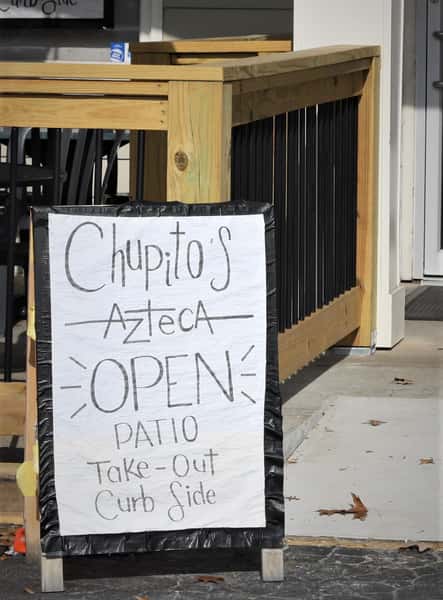 Curb Side
Chupito's
Azteca
OPEN
PATIO
Take-Out
Curb Side